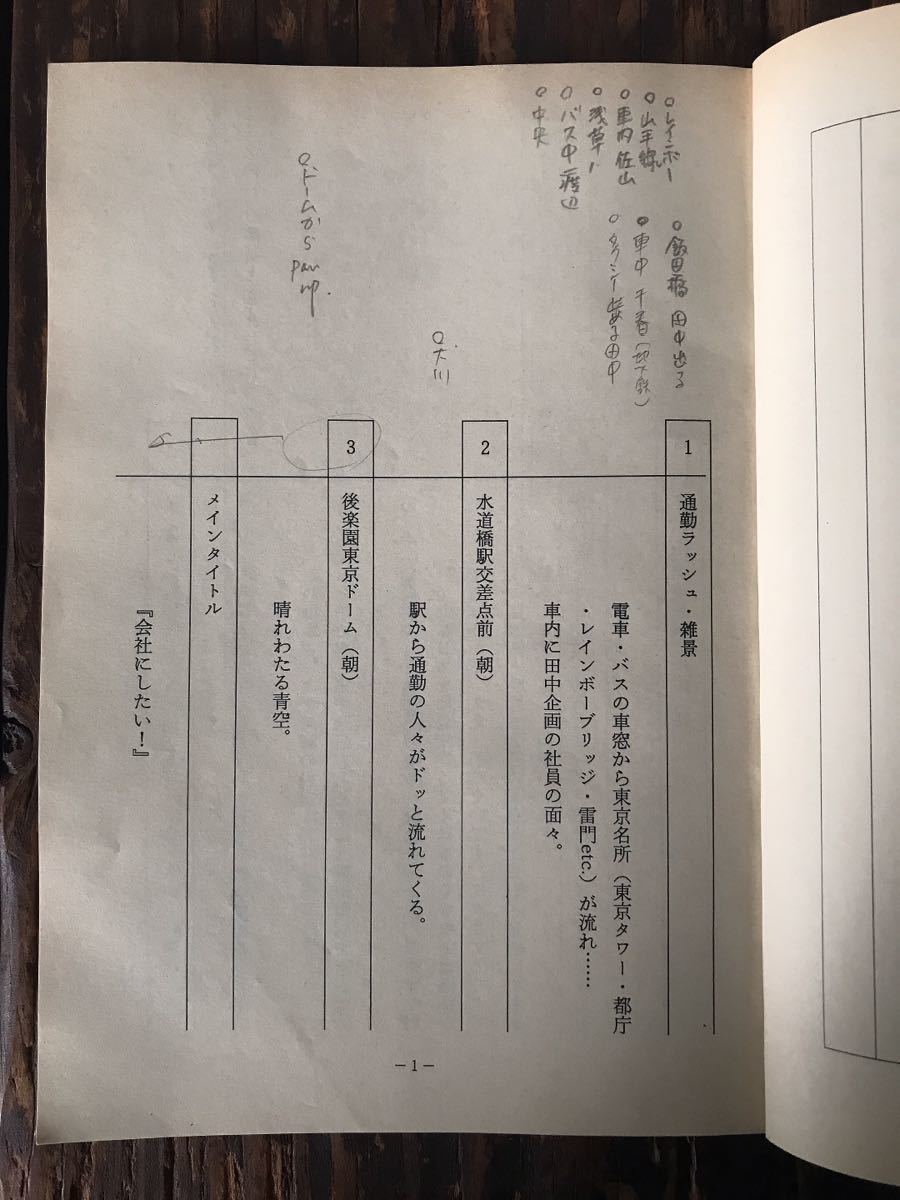 ○レインボー
○山手線
○車内 佐山
○浅草
○バス中 渡辺
○中央
○飯田橋 田中出る
○車中 千春(地下鉄)
田中
○大川
○ドームから
pan
up.
1
通勤ラッシュ・雑景
電車・バスの車窓から東京名所(東京タワー・都庁
・レインボーブリッジ・雷門etc.)が流れ……
車内に田中企画の社員の面々。
2
水道橋駅交差点前(朝)
駅から通勤の人々がドッと流れてくる。
3
後楽園東京ドーム(朝)
晴れわたる青空。
メインタイトル
『会社にしたい!』
－1－